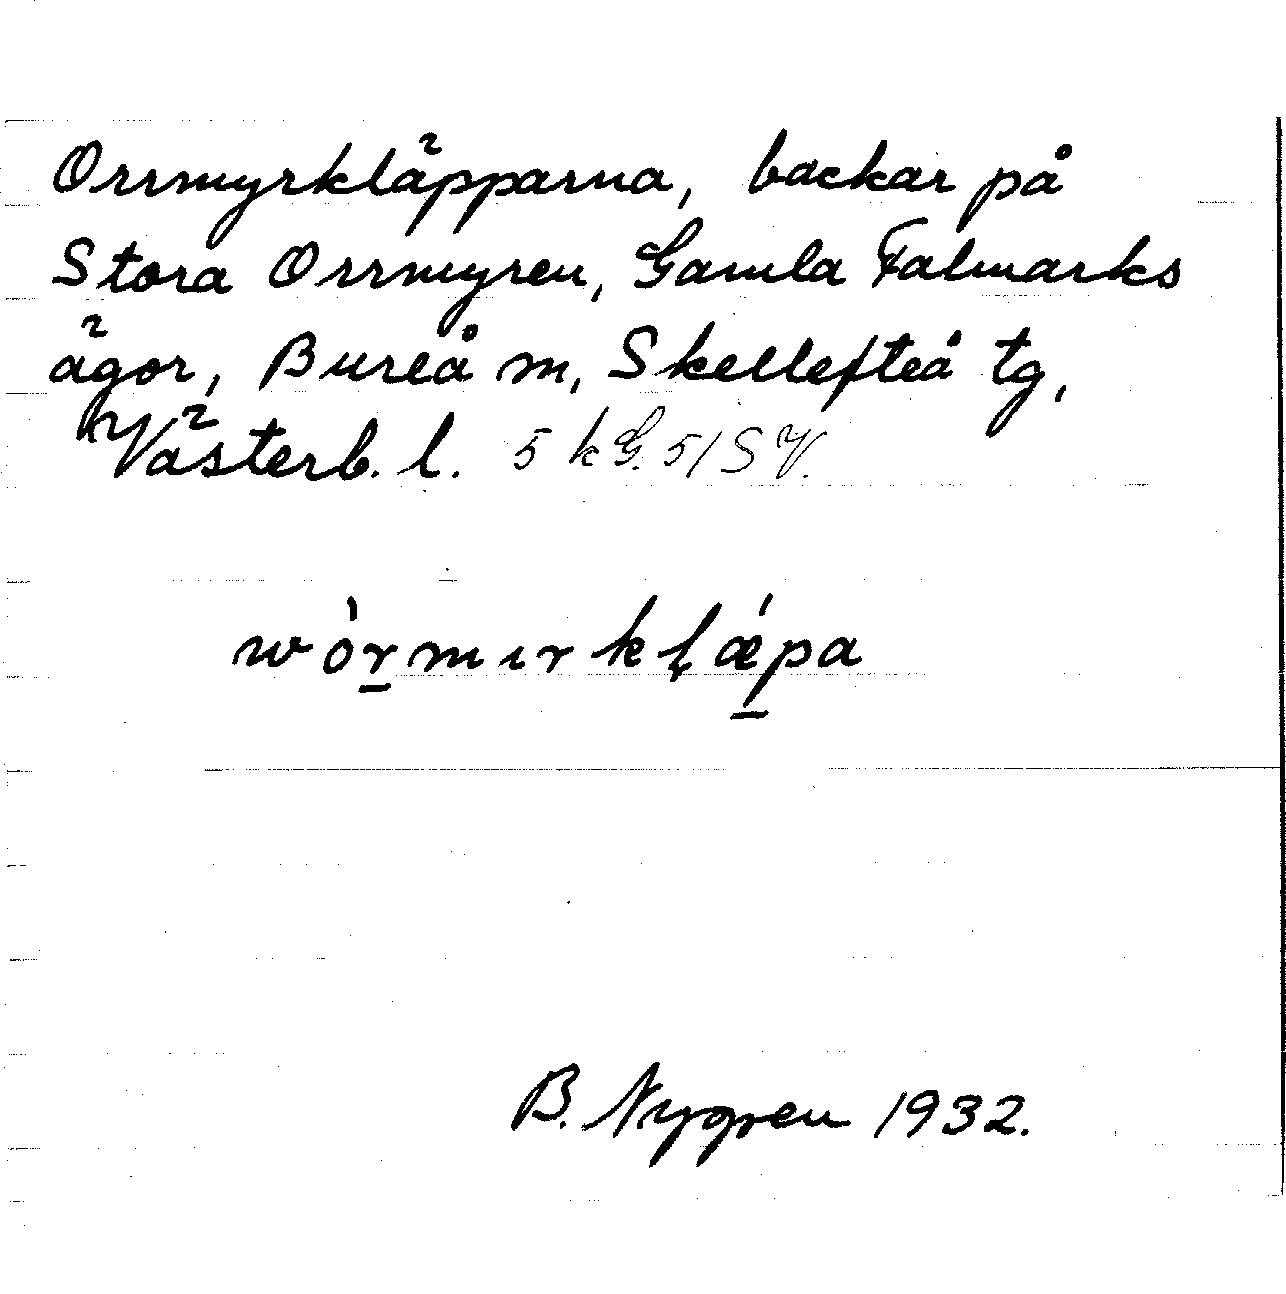 Orrmyrkläpparna, backar på
Stora Orrmyren, Gamla Falmarks
ägor, Bureå m, Skellefteå tg,
Västerb. l. 5 k G. 51 SV.
wòr̲mırkļǽ̲pa
B. Nygren 1932.